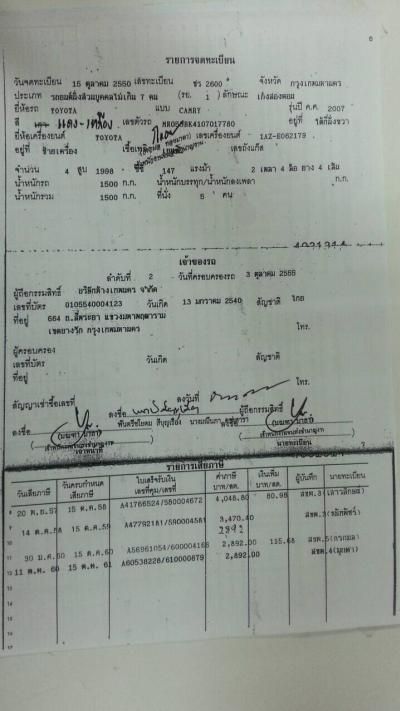 6
รายการจดทะเบียน
วันจดทะเบียน 15 ตุลาคม 2550 เลขทะเบียน ชว 2600 จังหวัด กรุงเทพมหานคร
ประเภท รถยนต์นั่งส่วนบุคคลไม่เกิน 7 คน (รย. 1) ลักษณะ เก๋งสองตอน
ยี่ห้อรถ TOYOTA แบบ CAMRY รุ่นปี ค.ศ. 2007
สี แดง-เหลือง เลขตัวรถ MR053BK4107017780 อยู่ที่
ยี่ห้อเครื่องยนต์ TOYOTA เลขเครื่องยนต์ 1AZ-E062179
อยู่ที่ ซ้ายเครื่อง เชื้อเพลิง เลขถังแก๊ส
จำนวน 4 สูบ 1998 ซีซี 147 แรงม้า 2 เพลา 4 ล้อ ยาง 4 เส้น
น้ำหนักรถ 1500 ก.ก. น้ำหนักบรรทุก/น้ำหนักลงเพลา ก.ก.
น้ำหนักรวม 1500 ก.ก. ที่นั่ง 5 คน
เจ้าของรถ
ลำดับที่ 2 วันที่ครอบครองรถ 3 ตุลาคม 2555
ผู้ถือกรรมสิทธิ์ จำกัด
เลขที่บัตร 0105540004123 วันเกิด 13 มกราคม 2540 สัญชาติ ไทย
ที่อยู่ 664 ถ.สี่พระยา แขวงมหาพฤฒาราม
เขตบางรัก กรุงเทพมหานคร โทร.
ผู้ครอบครอง
เลขที่บัตร วันเกิด สัญชาติ
ที่อยู่
โทร.
สัญญาเช่าซื้อเลขที่ ลงวันที่
ลงชื่อ ลงชื่อ ผู้ถือกรรมสิทธิ์
นายทะเบียน
7
รายการเสียภาษี
วันเสียภาษี วันครบกำหนดเสียภาษี ใบเสร็จรับเงินเลขที่คุม/เลขที่ ค่าภาษีบาท/สต. เงินเพิ่มบาท/สต. ผู้บันทึก นายทะเบียน
20 พ.ย.57 15 ต.ค.58 A41766524/580004672 4,048.80 80.98
14 ต.ค.58 15 ต.ค.59 A47792181/590004581 3,470.40
2892
30 ม.ค.60 15 ต.ค.60 A56961054/600004166 2,892.00 115.68
11 ต.ค. 60 15 ต.ค. 61 A60538228/610000879 2,892.00